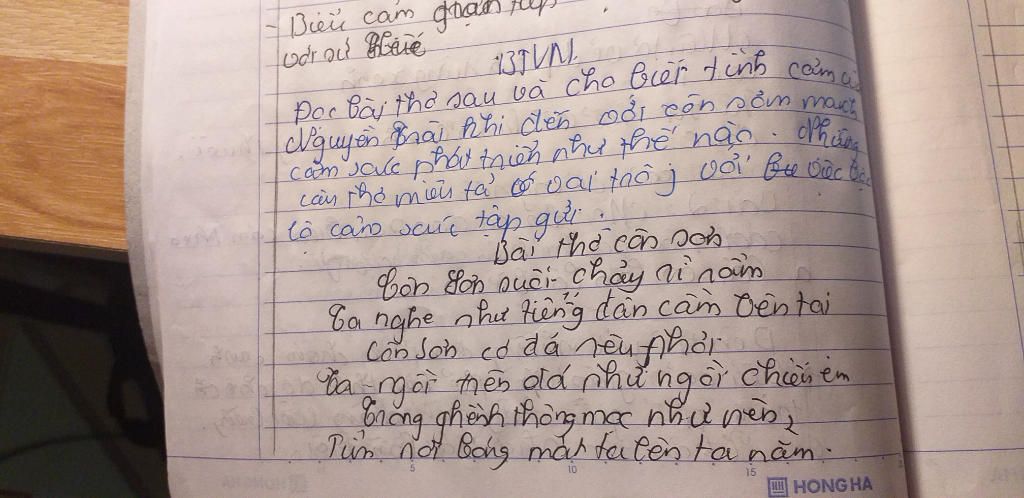 - Biểu cảm gián tiếp
BTVN.
Đọc bài thơ sau và cho biết tình cảm của
Nguyễn Trãi khi đến với côn sơn
cảm xúc phát triển như thế nào. Những
câu thơ miêu tả có vai trò j với việc bộc
lộ cảm xúc tập gửi.
Bài thơ côn sơn
Côn Sơn suối chảy rì rầm
Ta nghe như tiếng đàn cầm bên tai
Côn Sơn có đá rêu phơi
Ta ngồi trên đá như ngồi chiếu êm
Trong ghềnh thông mọc như nêm,
Tìm nơi bóng mát ta lên ta nằm.
5 10 15
HONG HA